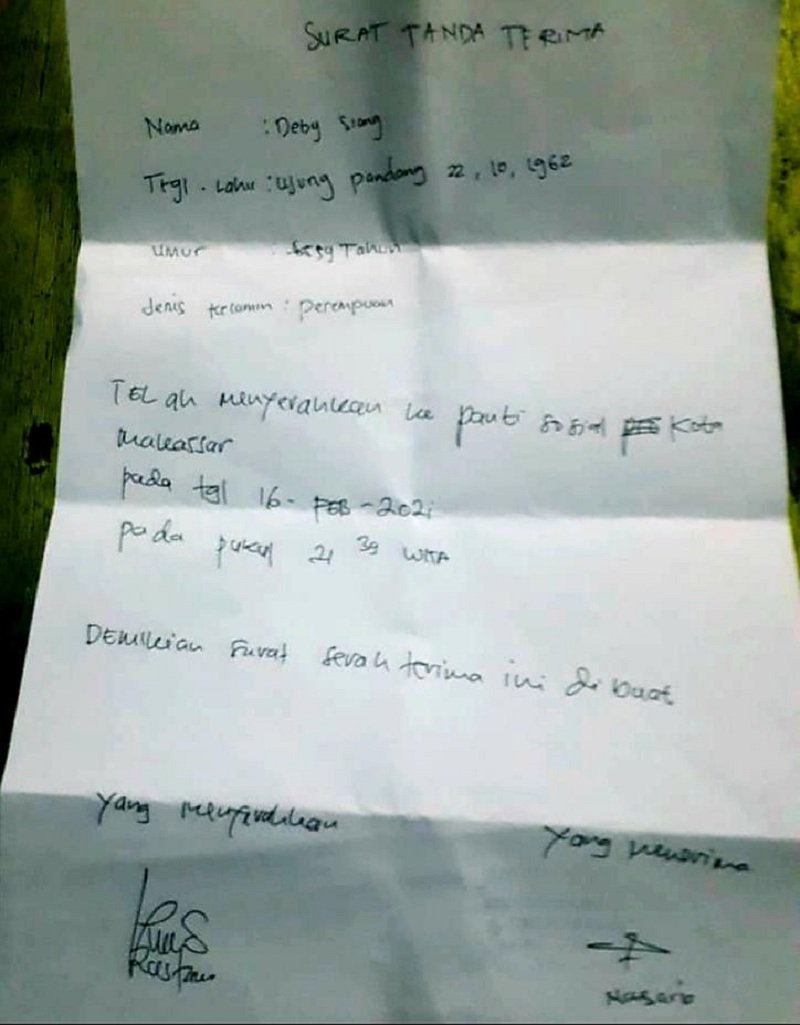 SURAT TANDA TERIMA
Nama : Deby Siang
Ttgl . Lahir : Ujung pandang 22, 10, 1962
UMUR : 59 Tahun
Jenis kelamin : perempuan
TELah menyerahkan ke panti sosial Kota
Makassar
pada tgl 16 - FEB - 2021
pada pukul 21 39 WITA
DEMikian surat serah terima ini di buat
Yang menyerahkan
Yang menerima
Rustam